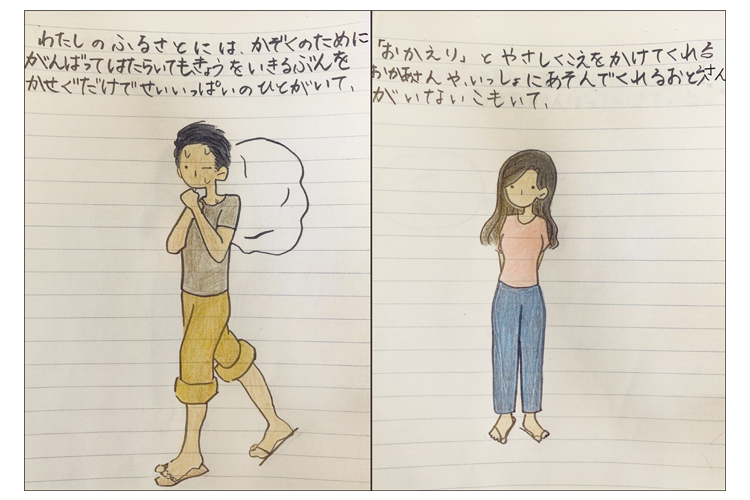 わたしのふるさとには、かぞくのために
がんばってはたらいてもきょうをいきるぶんを
かせぐだけでせいいっぱいのひとがいて、
「おかえり」とやさしくこえをかけてくれる
おかあさんや、いっしょにあそんでくれるおとうさん
がいないこもいて、